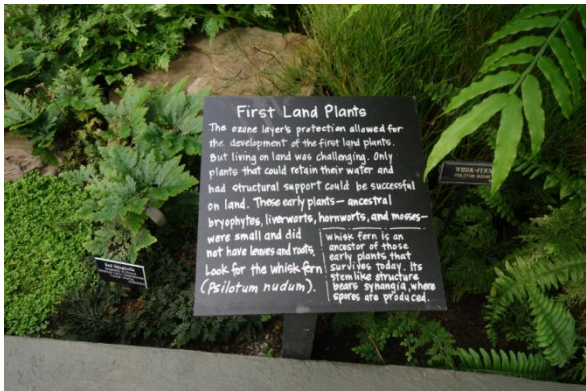 First Land Plants
The ozone layer's protection allowed for
the development of the first land plants.
But living on land was challenging. Only
plants that could retain their water and
had structural support could be successful
on land. These early plants— ancestral
bryophytes, liverworts, hornworts, and mosses—
were small and did
not have leaves and roots.
Look for the whisk fern
(Psilotum nudum).
whisk fern is an
ancestor of those
early plants that
survives today. Its
stemlike structure
bears synangia, where
spores are produced.
WHISK-FERN
PSILOTUM NUDUM